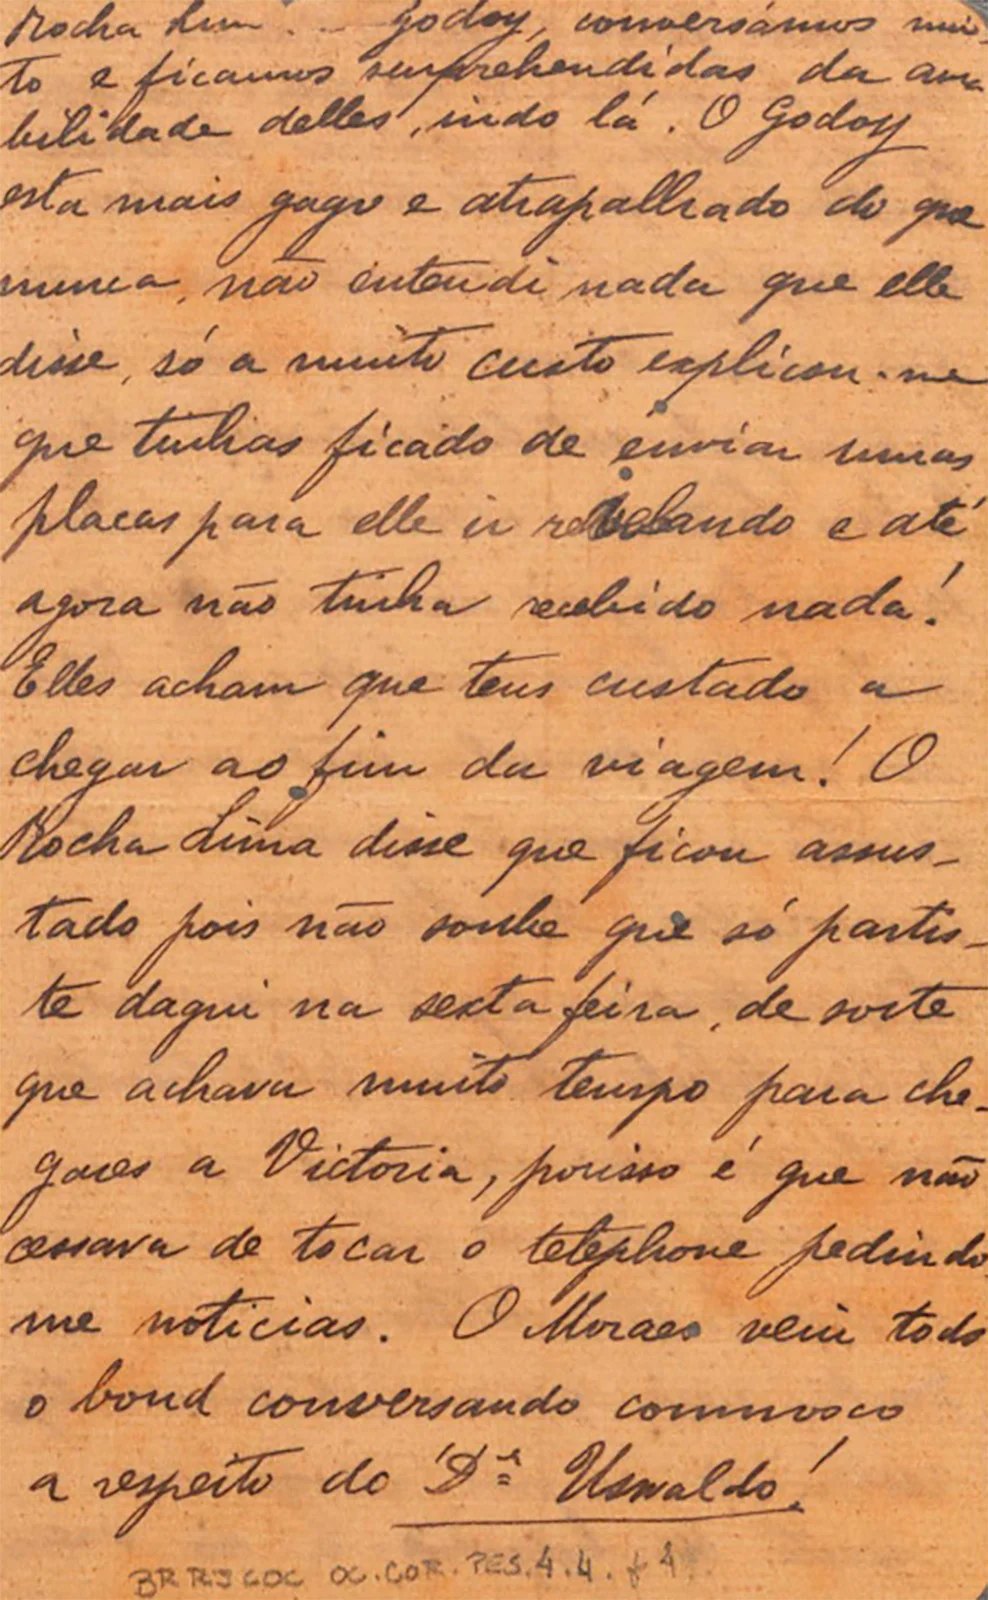 Rocha Lima... Godoy, conversámos mui-
to e ficamos surprehendidas da ama
bilidade delles, indo lá. O Godoy
esta mais gago e atrapalhado do que
nunca, não entendi nada que elle
disse, só a muito custo explicou-me
que tinhas ficado de enviar umas
placas para elle ir revelando e até
agora não tinha recebido nada!
Elles acham que tens custado a
chegar ao fim da viagem! O
Rocha Lima disse que ficou assus-
tado pois não soube que só partis-
te daqui na sexta feira, de sorte
que achava muito tempo para che-
gares a Victoria, porisso é que não
cessava de tocar o telephone pedindo
me noticias. O Moraes veiu todo
o bond conversando comnosco
a respeito do "Dr. Uswaldo!
BR RJCOC OC.COR.PES.4.4. f 4